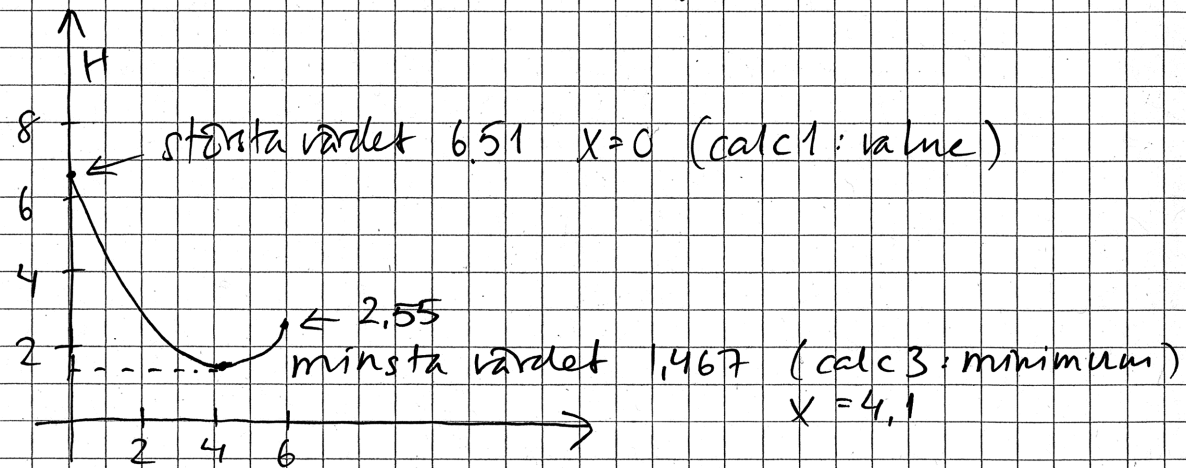 H
8
största värdet 6.51 x=0 (calc1: value)
6
4
← 2.55
2
minsta värdet 1,467 (calc3: minimum)
x = 4,1
2 4 6